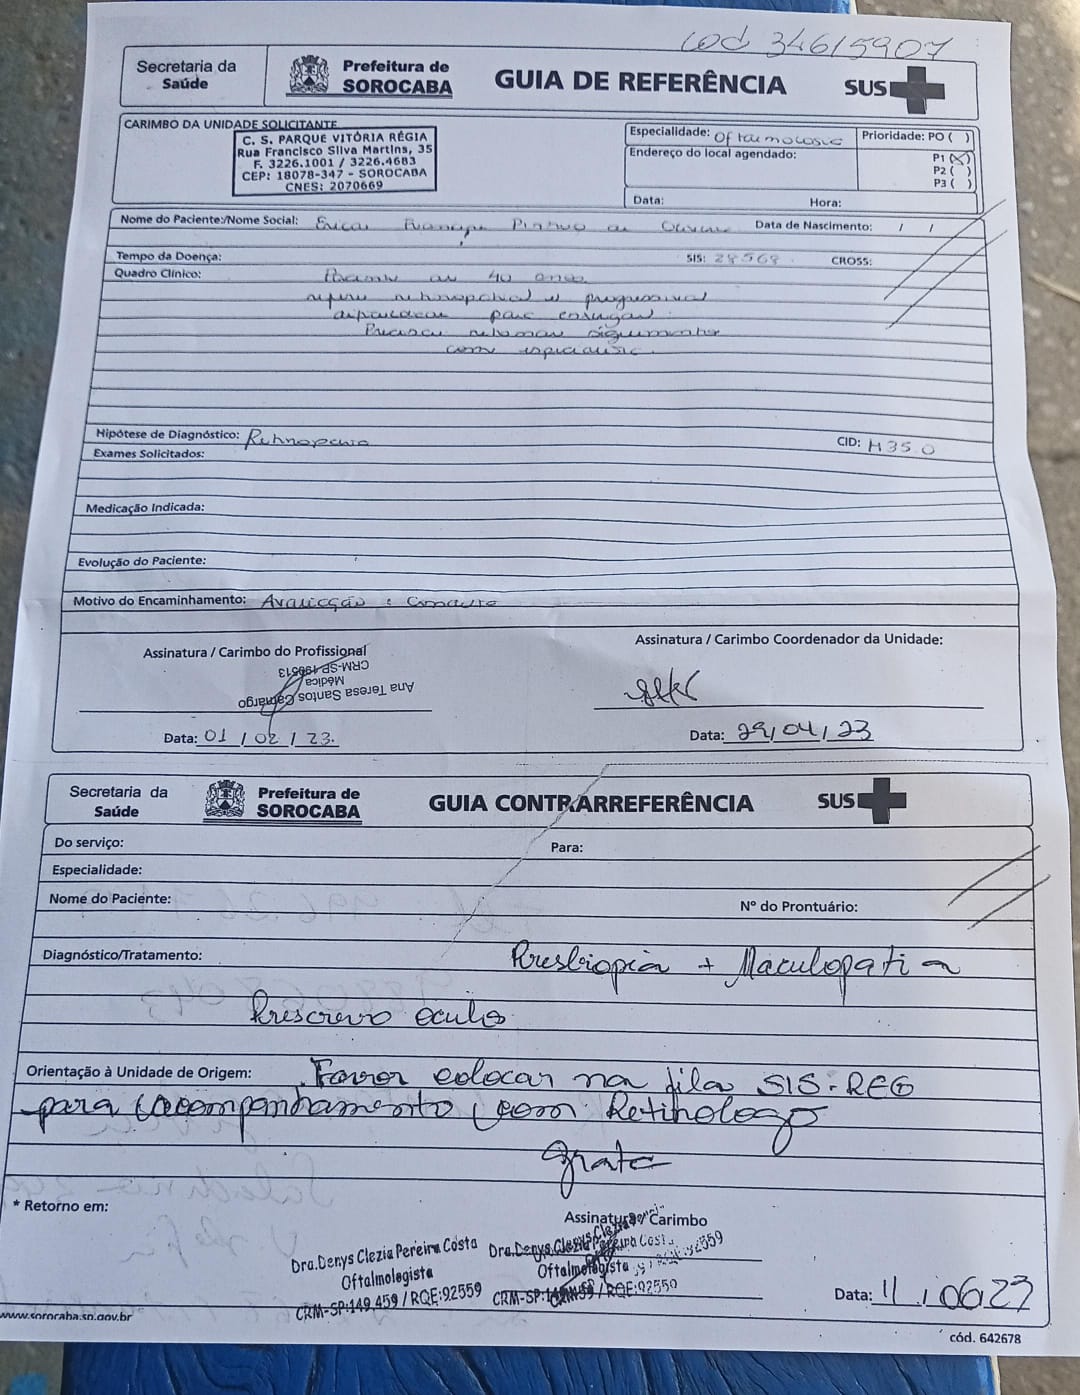 cod 34615907
Secretaria da
Saúde
Prefeitura de
SOROCABA
GUIA DE REFERÊNCIA
SUS
CARIMBO DA UNIDADE SOLICITANTE
C. S. PARQUE VITÓRIA RÉGIA
Rua Francisco Silva Martins, 35
F. 3226.1001 / 3226.4683
CEP: 18078-347 - SOROCABA
CNES: 2070669
Especialidade: Oftalmologia
Prioridade: PO ( )
P1 (X)
P2 ( )
P3 ( )
Endereço do local agendado:
Data: Hora:
Nome do Paciente:/Nome Social: Erica
Data de Nascimento: / /
Tempo da Doença:
SIS: 28568 CROSS:
Quadro Clínico: Paciente de 40 anos
refere retinopatia e progressiva
para
Precisa retomar seguimento
com especialista.
Hipótese de Diagnóstico: Retinopatia
CID: H35.0
Exames Solicitados:
Medicação Indicada:
Evolução do Paciente:
Motivo do Encaminhamento: Avaliação e conduta
Assinatura / Carimbo do Profissional
Ana Teresa Santos Camargo
Médica
Data: 01 / 02 / 23.
Assinatura / Carimbo Coordenador da Unidade:
Data: 29/04/23
Secretaria da
Saúde
Prefeitura de
SOROCABA
GUIA CONTRARREFERÊNCIA
SUS
Do serviço:
Para:
Especialidade:
Nome do Paciente:
Nº do Prontuário:
Diagnóstico/Tratamento: Presbiopia + Maculopatia
Prescrevo oculos
Orientação à Unidade de Origem: Favor colocar na fila SIS-REG
para acompanhamento com Retinologo
grata
* Retorno em:
Assinatura / Carimbo
Dra.Denys Clezia Pereira Costa
Oftalmologista
CRM-SP:149.459 / RQE:92559
Dra.Denys Clezia
Oftalmologista
CRM-SP:149.459 / RQE:92559
Data: 11 / 06 23
www.sorocaba.sp.gov.br
cód. 642678